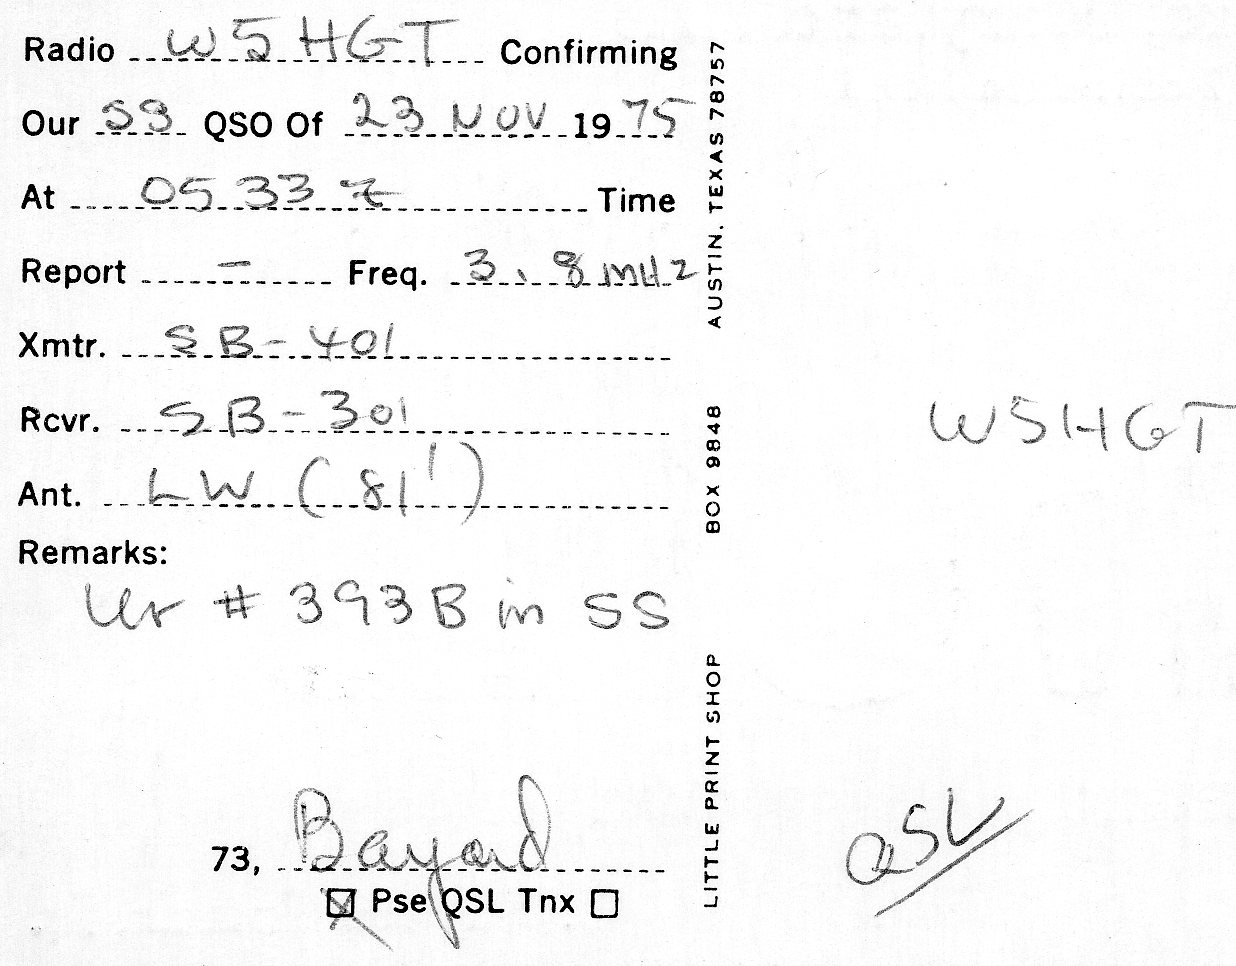 Radio W5HGT Confirming
Our SS QSO Of 23 NOV 1975
At 0533 z Time
Report - Freq. 3.8 MHz
Xmtr. SB-401
Rcvr. SB-301
Ant. LW (81')
Remarks:
Ur # 393B in SS
73, Bayard
Pse QSL Tnx
LITTLE PRINT SHOP BOX 9848 AUSTIN, TEXAS 78757
W5HGT
QSL